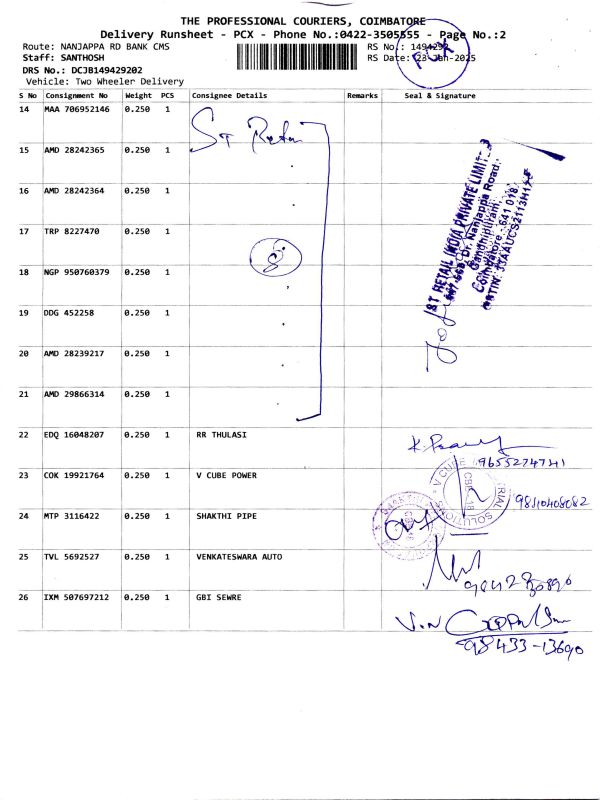 THE PROFESSIONAL COURIERS, COIMBATORE
Delivery Runsheet - PCX - Phone No.:0422-3505555 - Page No.:2
Route: NANJAPPA RD BANK CMS
RS No.: 1494292
Staff: SANTHOSH
RS Date: 23-Jan-2025
DRS No.: DCJB149429202
Vehicle: Two Wheeler Delivery
S No Consignment No Weight PCS Consignee Details Remarks Seal & Signature
14 MAA 706952146 0.250 1 ST Retail
15 AMD 28242365 0.250 1
16 AMD 28242364 0.250 1
17 TRP 8227470 0.250 1
8
18 NGP 950760379 0.250 1
19 DDG 452258 0.250 1
20 AMD 28239217 0.250 1
21 AMD 29866314 0.250 1
1ST RETAIL INDIA PRIVATE LIMITED
Nanjappa Road,
Gandhipuram,
Coimbatore - 641 018.
22 EDQ 16048207 0.250 1 RR THULASI
9655274741
23 COK 19921764 0.250 1 V CUBE POWER
V CUBE
SOLUTIONS
CBE-18
24 MTP 3116422 0.250 1 SHAKTHI PIPE
25 TVL 5692527 0.250 1 VENKATESWARA AUTO
26 IXM 507697212 0.250 1 GBI SEWRE
98433-13690